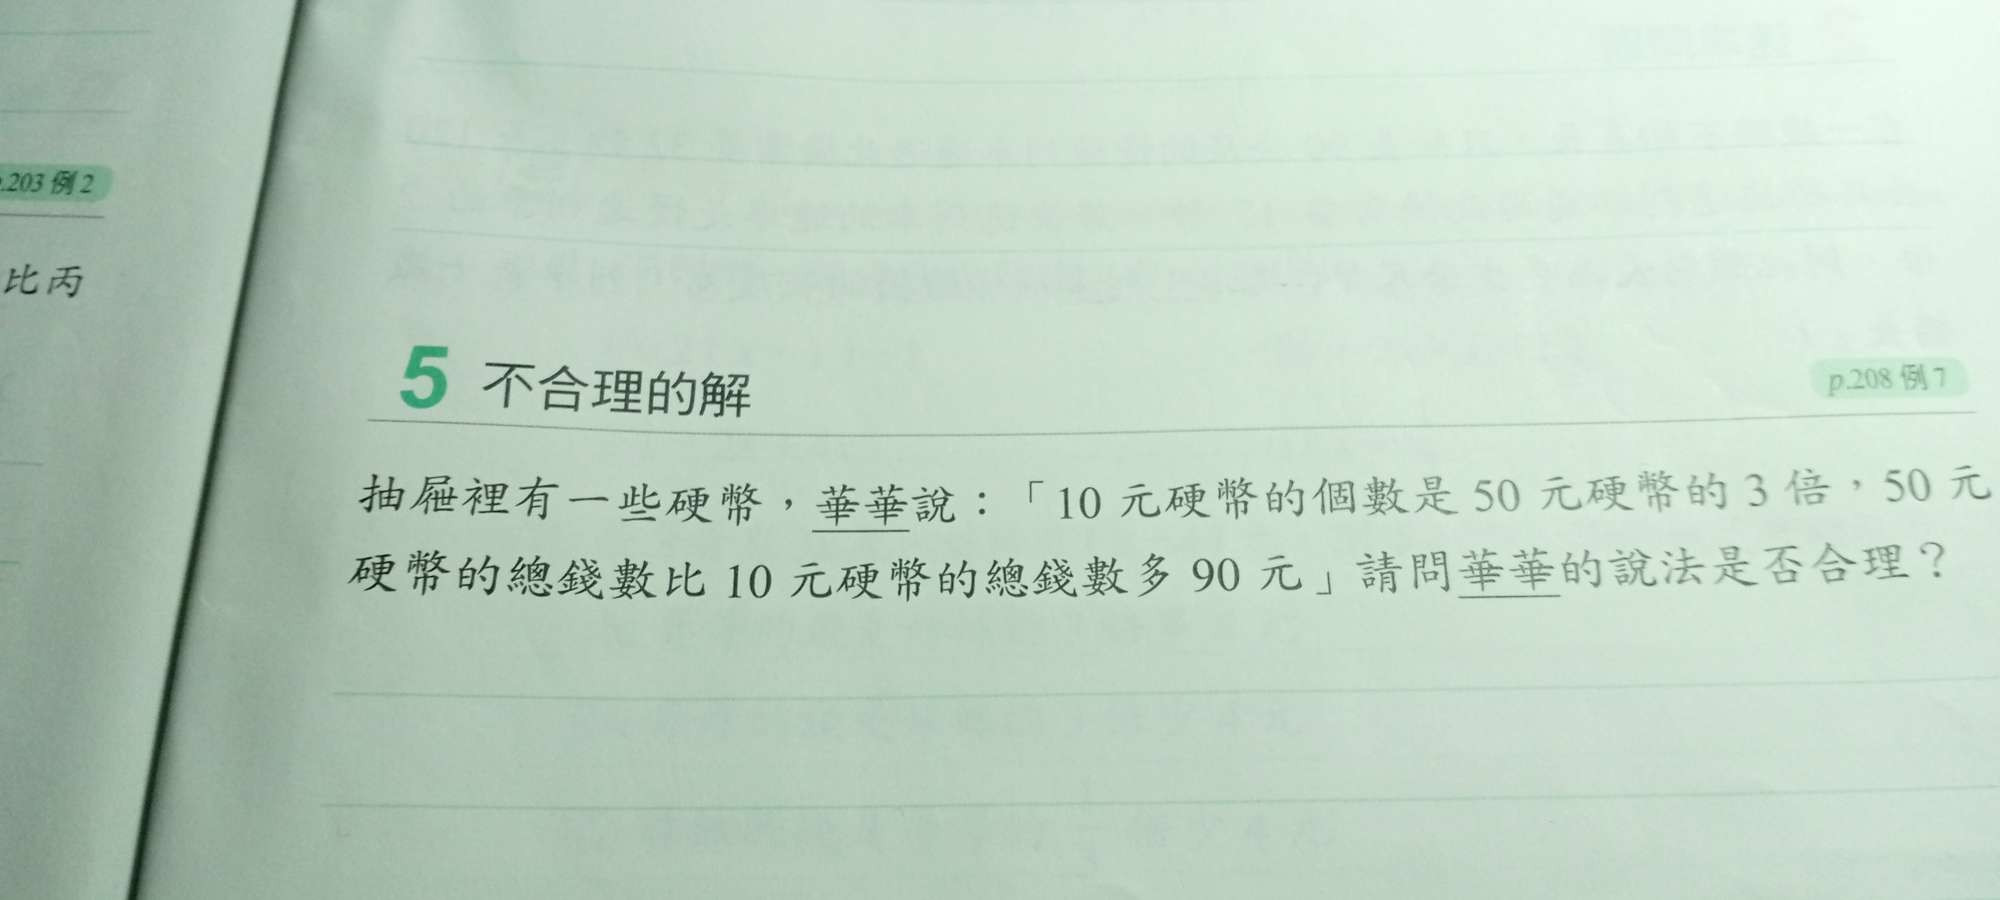 p.203 例 2
比丙
5 不合理的解
p.208 例 7
抽屜裡有一些硬幣，華華說：「10 元硬幣的個數是 50 元硬幣的 3 倍，50 元
硬幣的總錢數比 10 元硬幣的總錢數多 90 元」請問華華的說法是否合理？